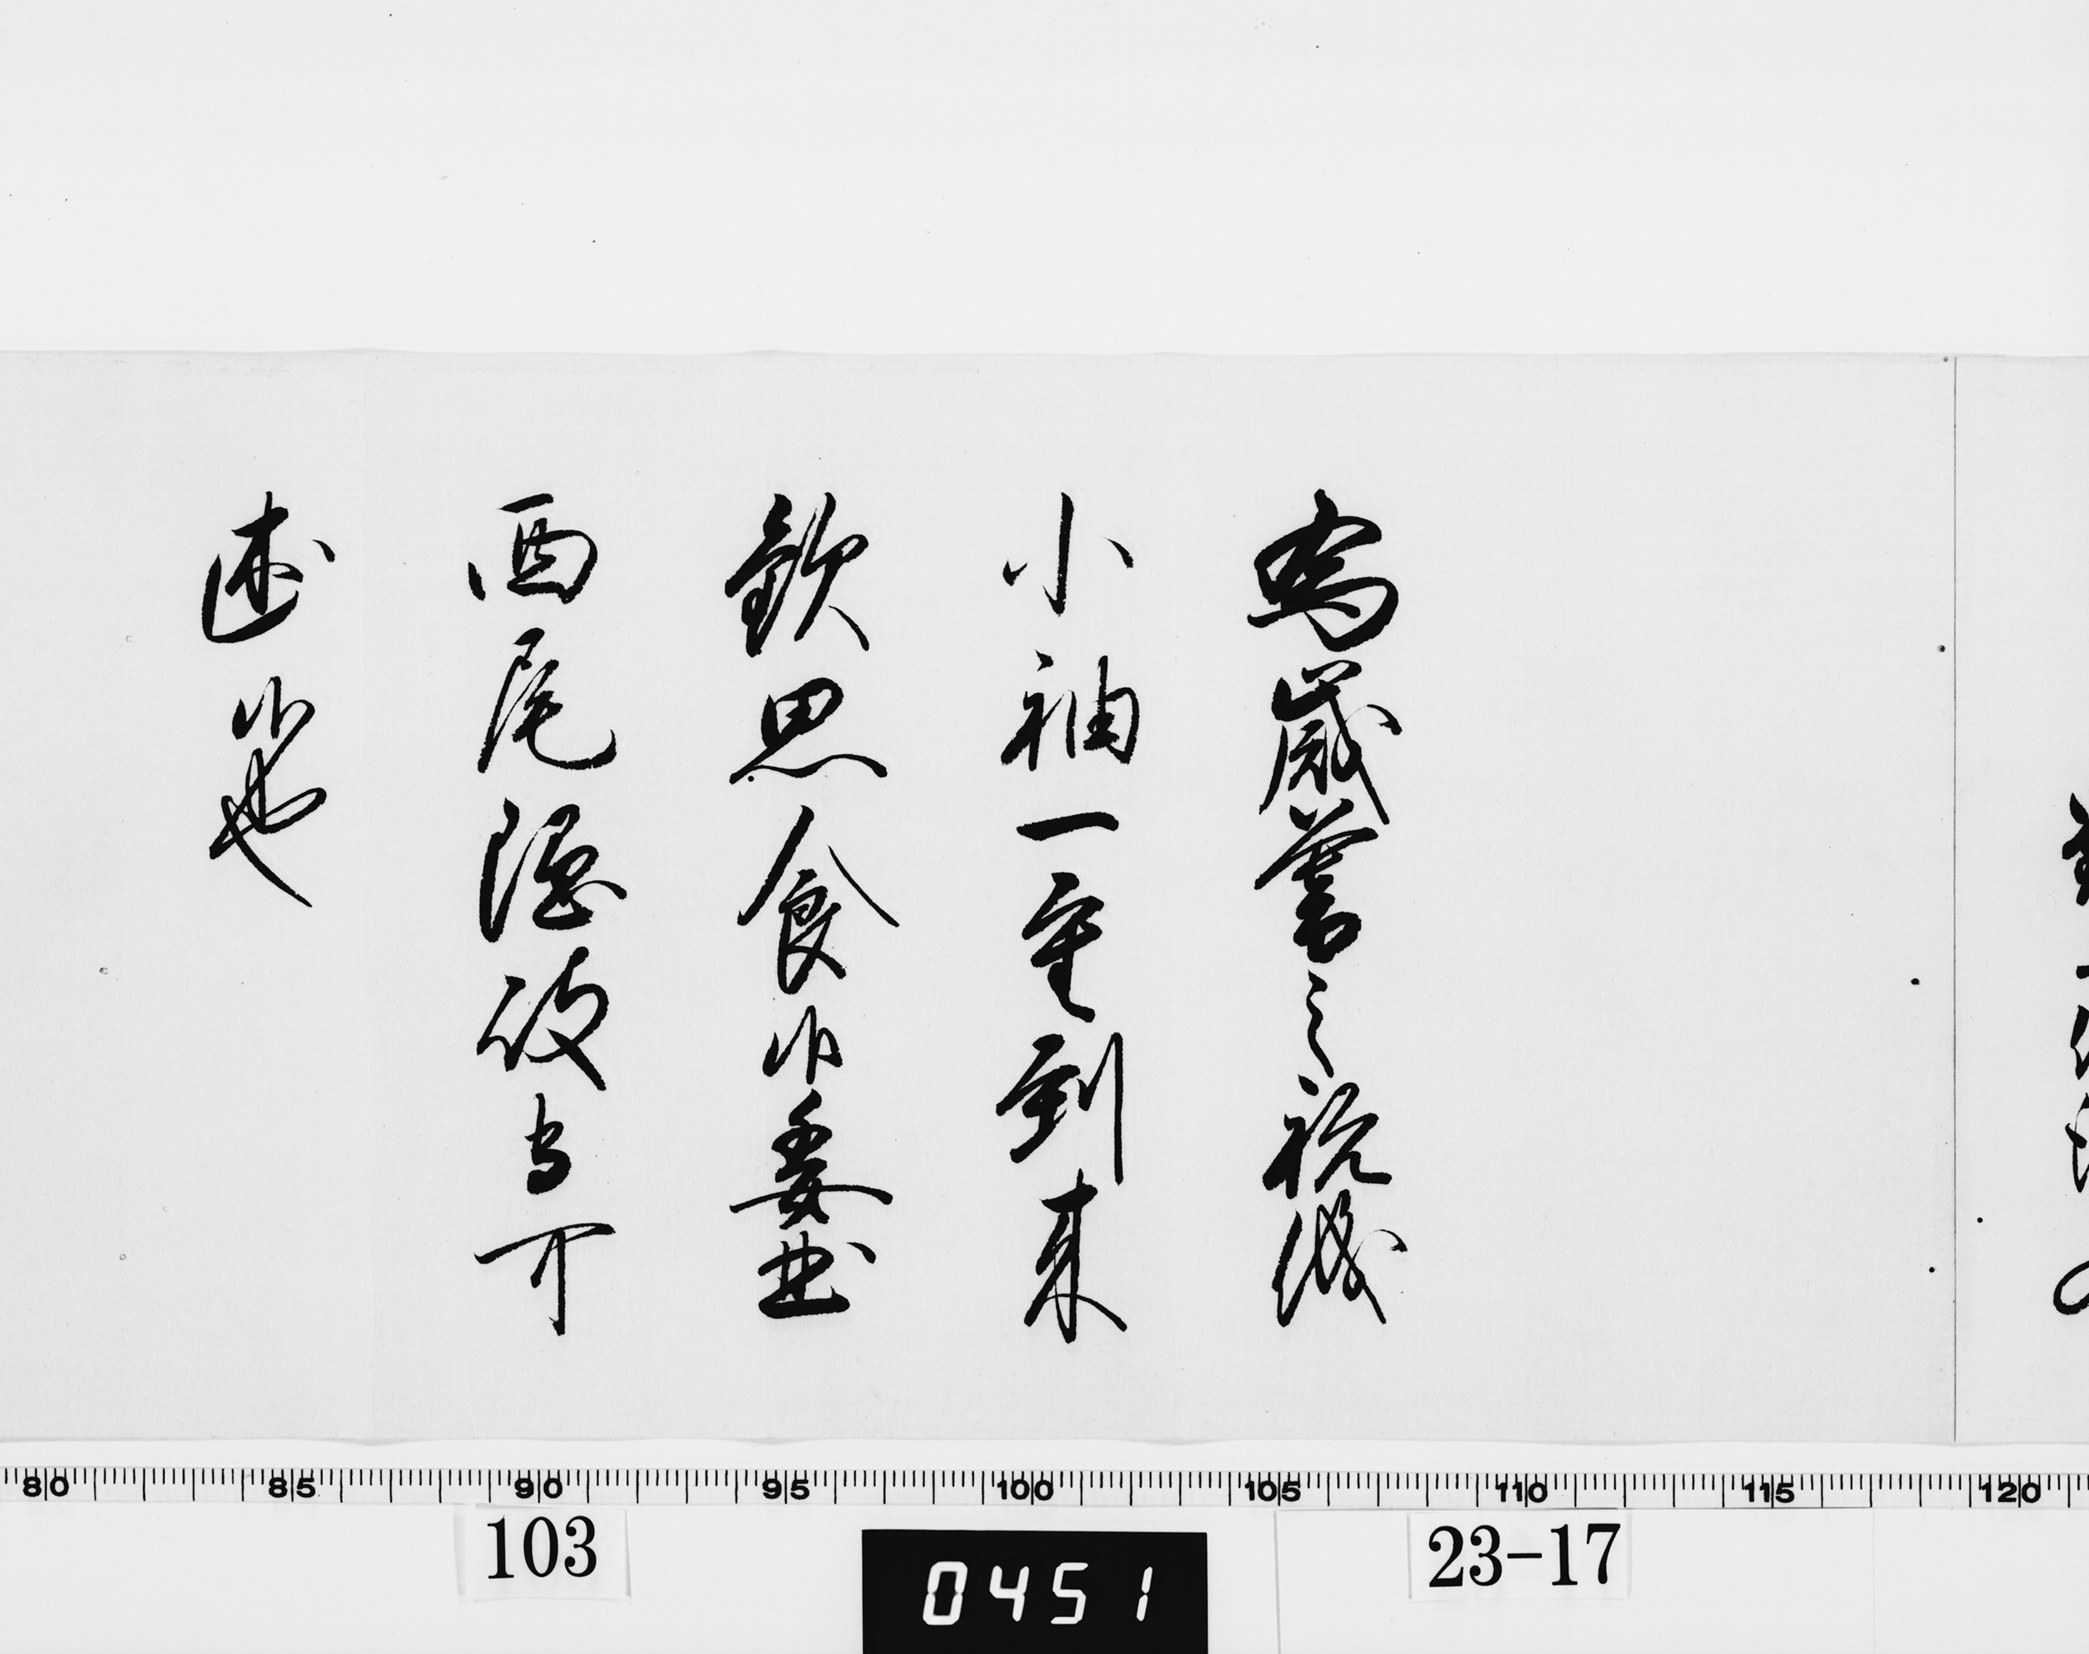 為歳暮之祝儀
小袖一重到来
歓思食候委曲
西尾隠岐守可
述候也
80 85 90 95 100 105 110 115 120
103
0451
23-17